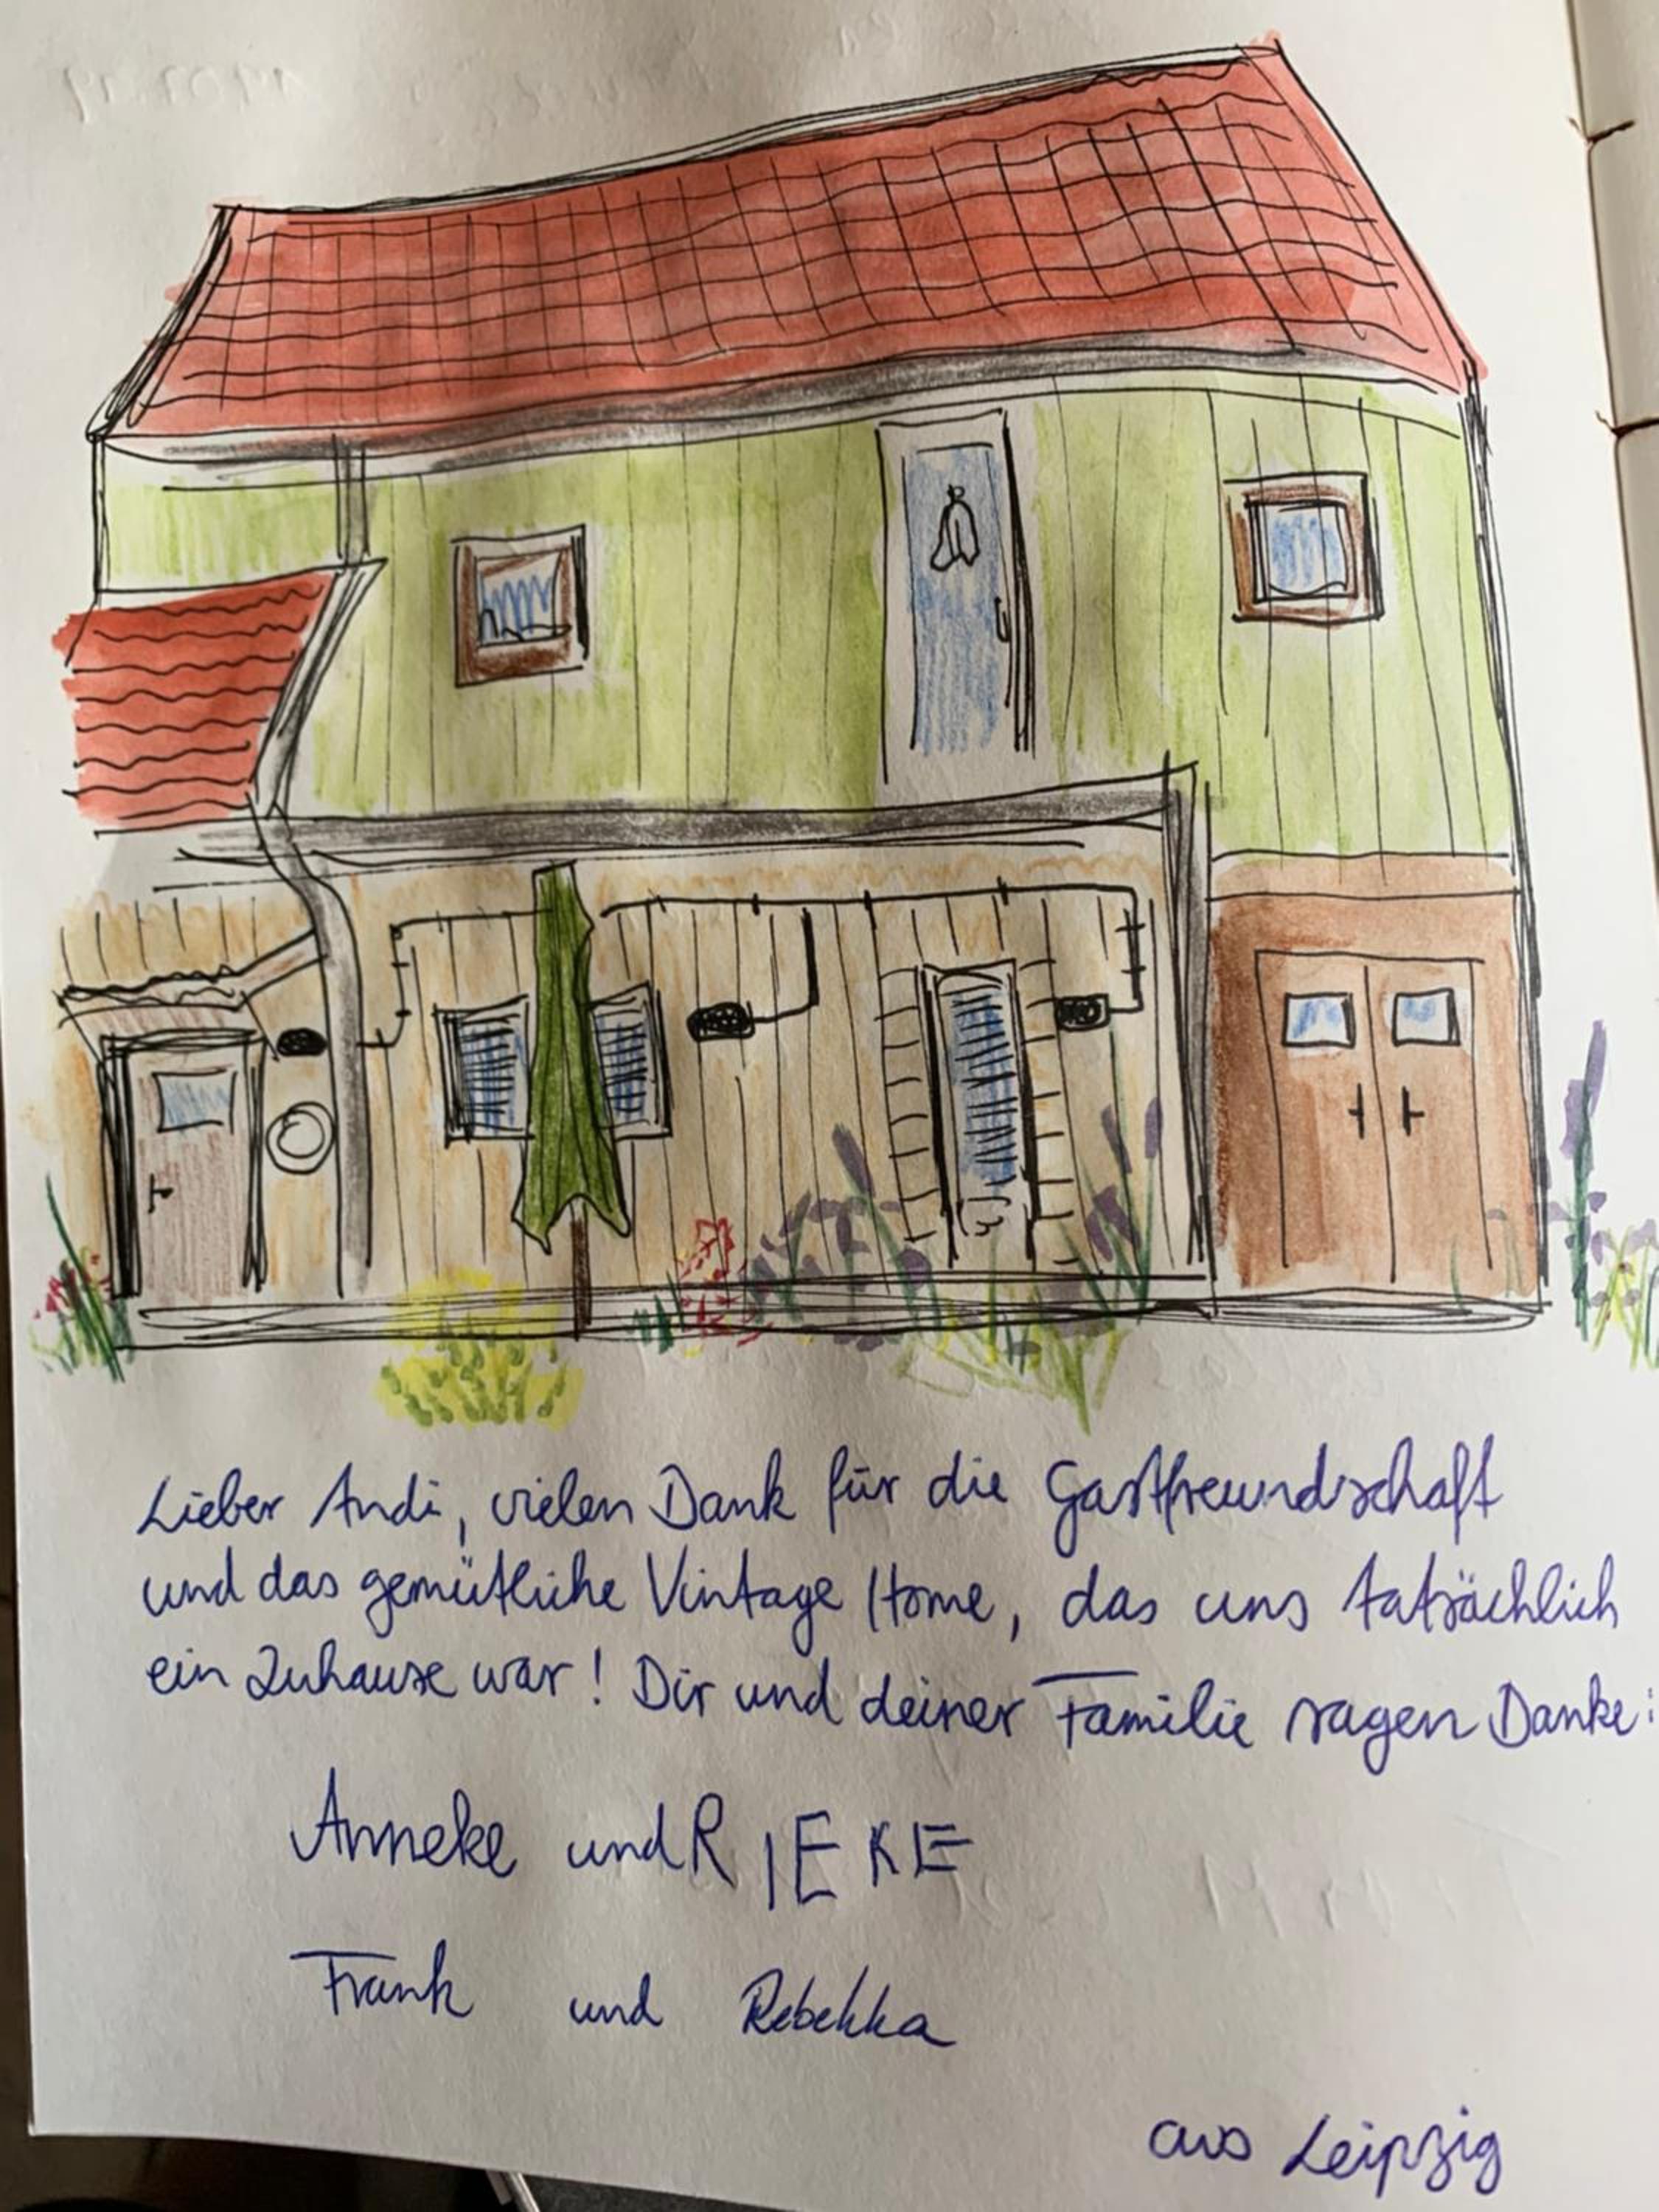 Lieber Andi, vielen Dank für die Gastfreundschaft
und das gemütliche Vintage Home, das uns tatsächlich
ein Zuhause war! Dir und deiner Familie sagen Danke:
Anneke und RIEKE
Frank und Rebekka
aus Leipzig